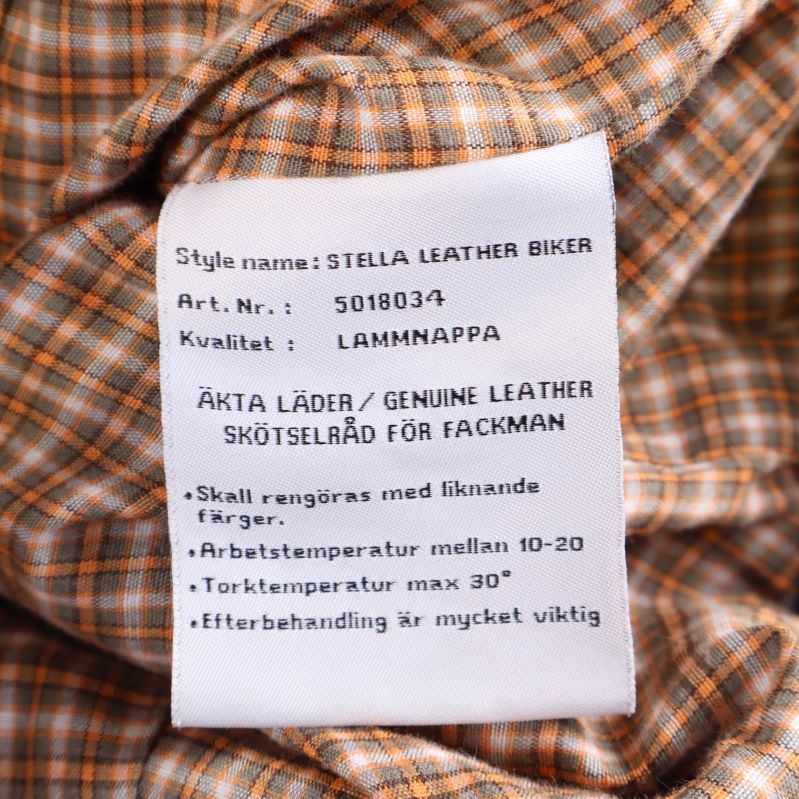 Style name: STELLA LEATHER BIKER
Art. Nr. : 5018034
Kvalitet : LAMMNAPPA
ÄKTA LÄDER/ GENUINE LEATHER
SKÖTSELRÅD FÖR FACKMAN
•Skall rengöras med liknande
färger.
•Arbetstemperatur mellan 10-20
•Torktemperatur max 30°
•Efterbehandling är mycket viktig